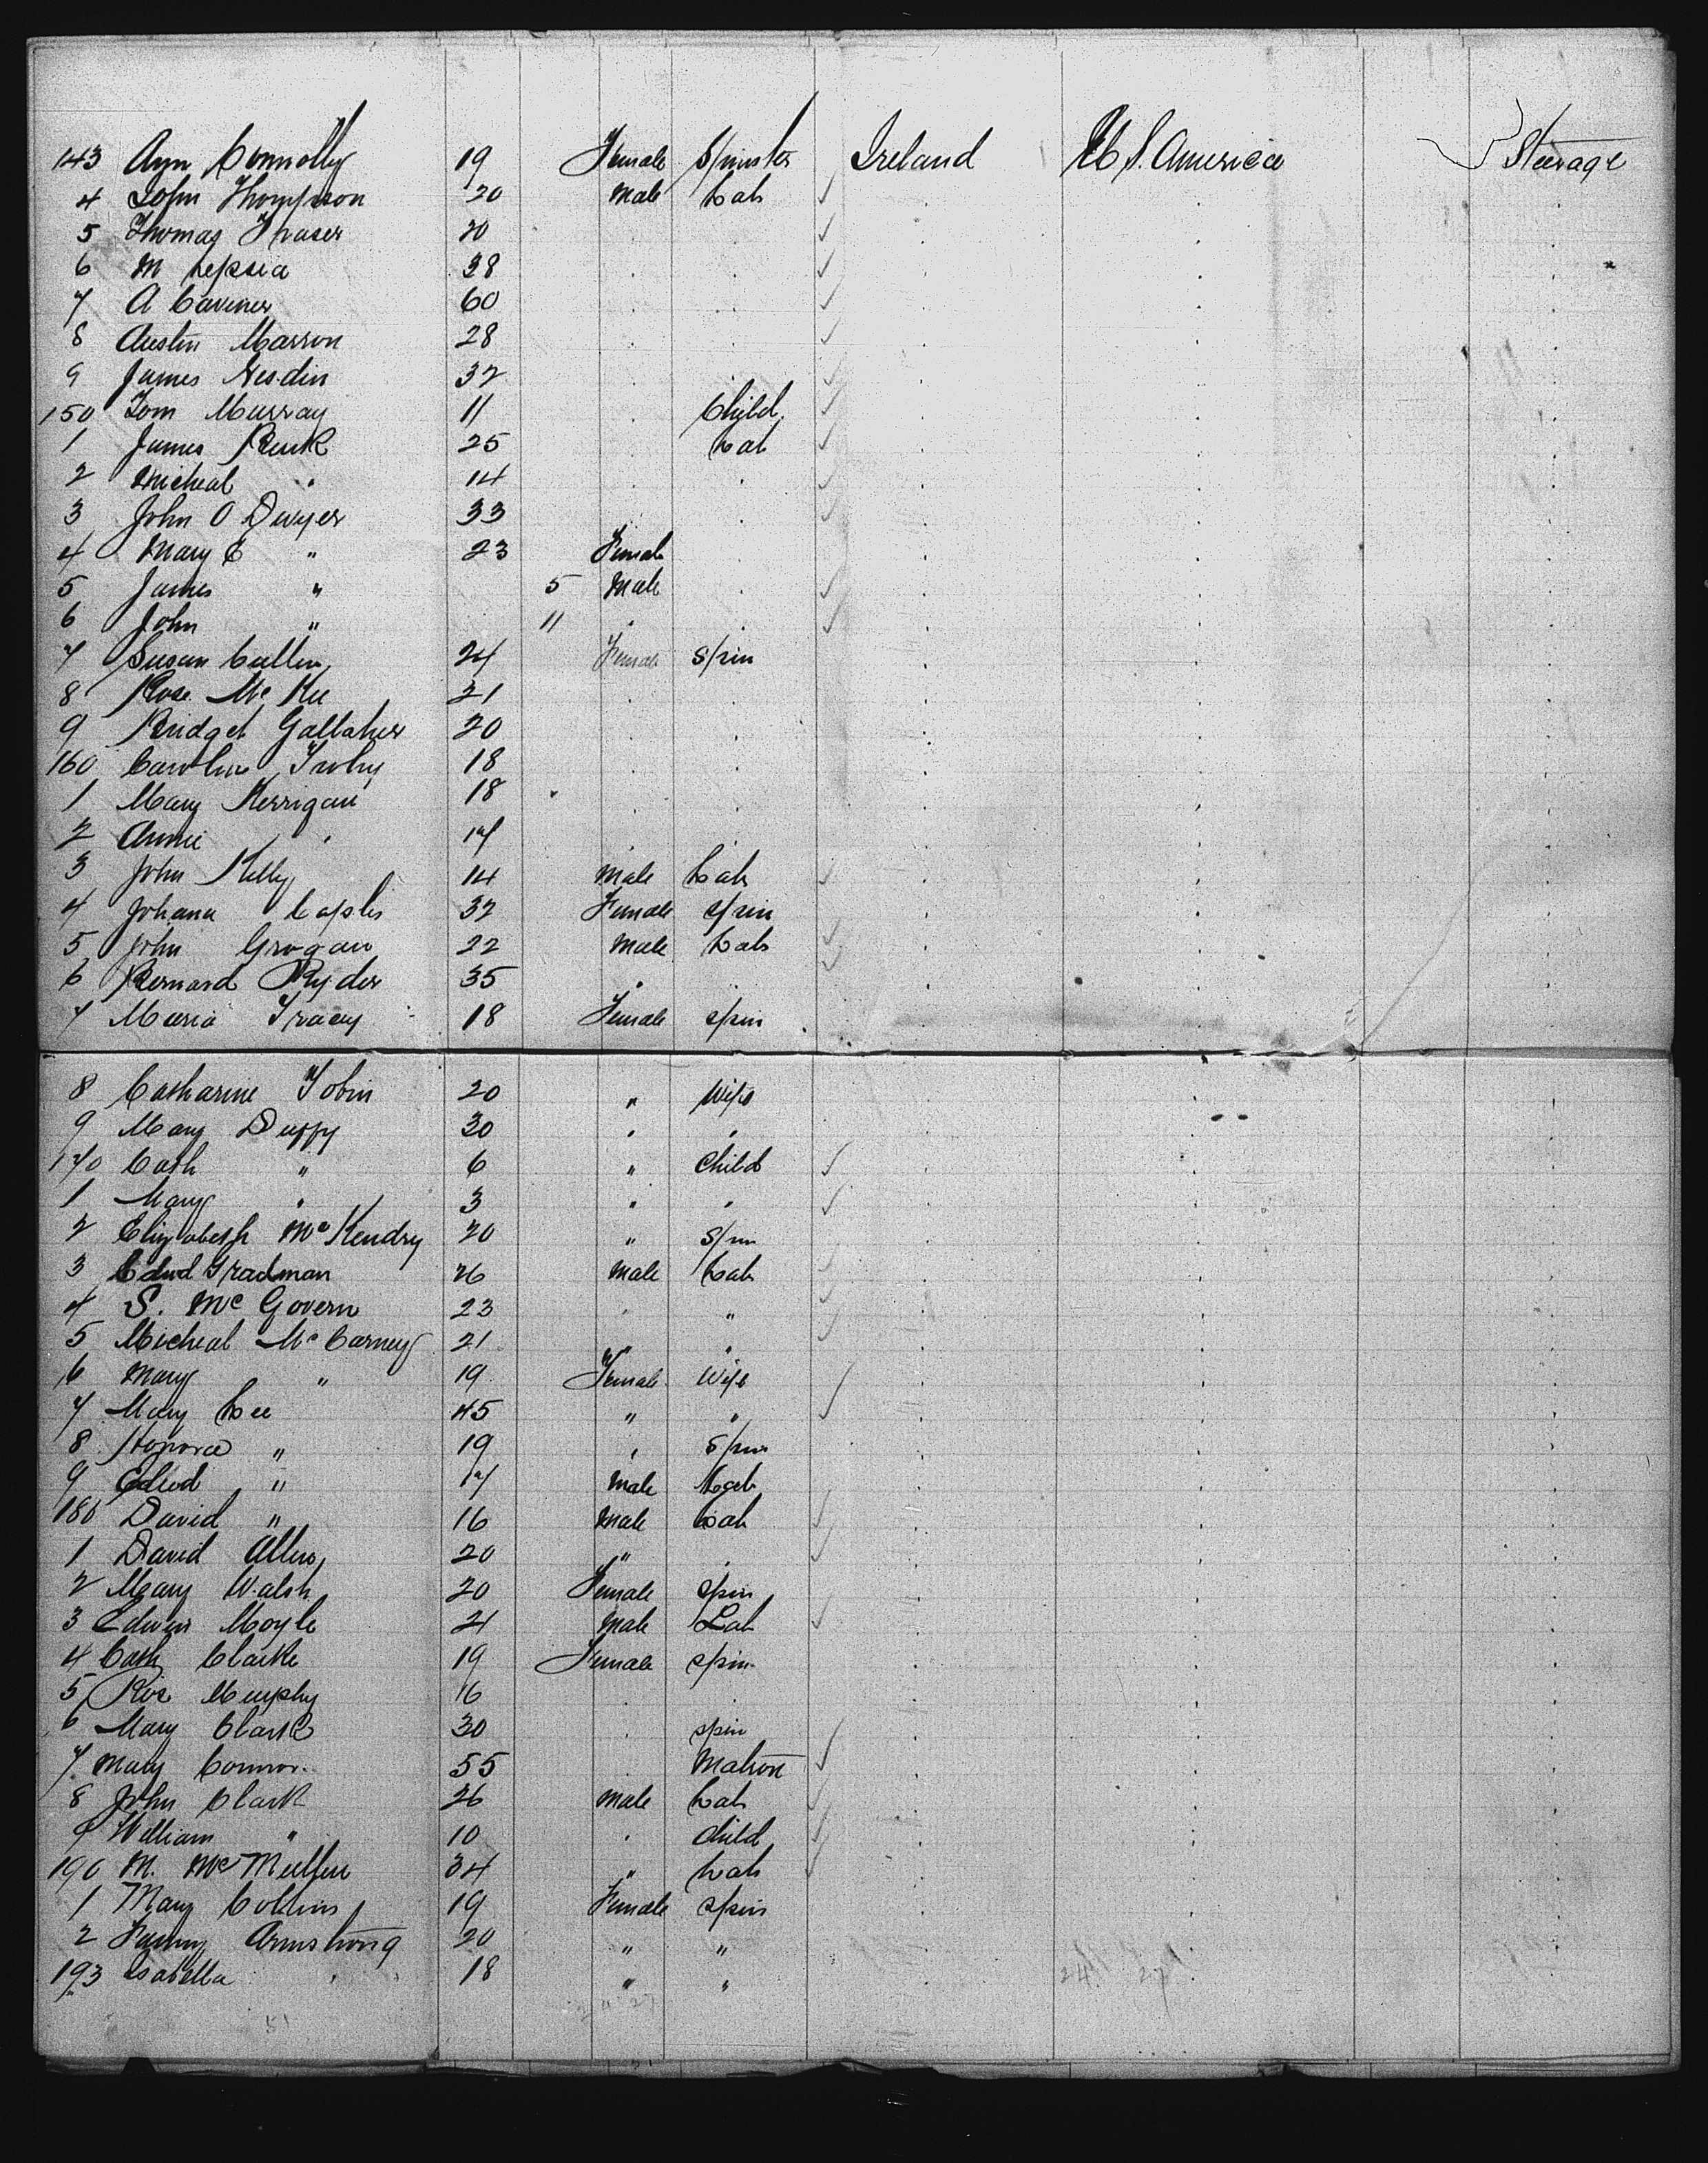 143 Ann Connolly 19 Female Spinster Ireland U S. America Steerage
4 John Thompson 20 Male Lab
5 Thomas Fraser 20
6 M Lepsia 38
7 A Caviner 60
8 Austin Marron 28
9 James Nesdin 32
150 Tom Murray 11 Child
1 James Burk 25 Lab
2 Micheal " 14
3 John O Dwyer 33
4 Mary C " 23 Female
5 James " 5 Male
6 John " 11
7 Susan Cullen 24 Female Spin
8 Rose Mc Kee 21
9 Bridget Gallaher 20
160 Caroline 18
1 Mary Kerrigan 18
2 Annie " 17
3 John Kelly 14 Male Lab
4 Johana Caplis 32 Female Spin
5 John Grogan 22 Male Lab
6 Bernard Ryder 35 "
7 Maria Tracey 18 Female Spin
8 Catharine Tobin 20 " Wife
9 Mary Duffy 30 " "
170 Cath " 6 " Child
1 Mary " 3 " "
2 Elizabeth McKendry 20 " Spin
3 Edwd Tradman 26 Male Lab
4 S. Mc Govern 23 " "
5 Micheal Mc Carney 21 " "
6 Mary " 19 Female Wife
7 Mary Lee 45 " "
8 Honora " 19 " Spin
9 Edwd " 17 Male Lab
180 David " 16 Male Lab
1 David Allen 20 "
2 Mary Walsh 20 Female Spin
3 Edwin Moyle 21 Male Lab
4 Cath Clarke 19 Female Spin
5 Rose Murphy 16
6 Mary Clark 30 Spin
7 Mary Connor 55 Matron
8 John Clark 26 Male Lab
9 William " 10 Child
190 M. McMullen 34 " Lab
1 Mary Collins 19 Female Spin
2 Fanny Armstrong 20 " "
193 Isabella " 18 " "